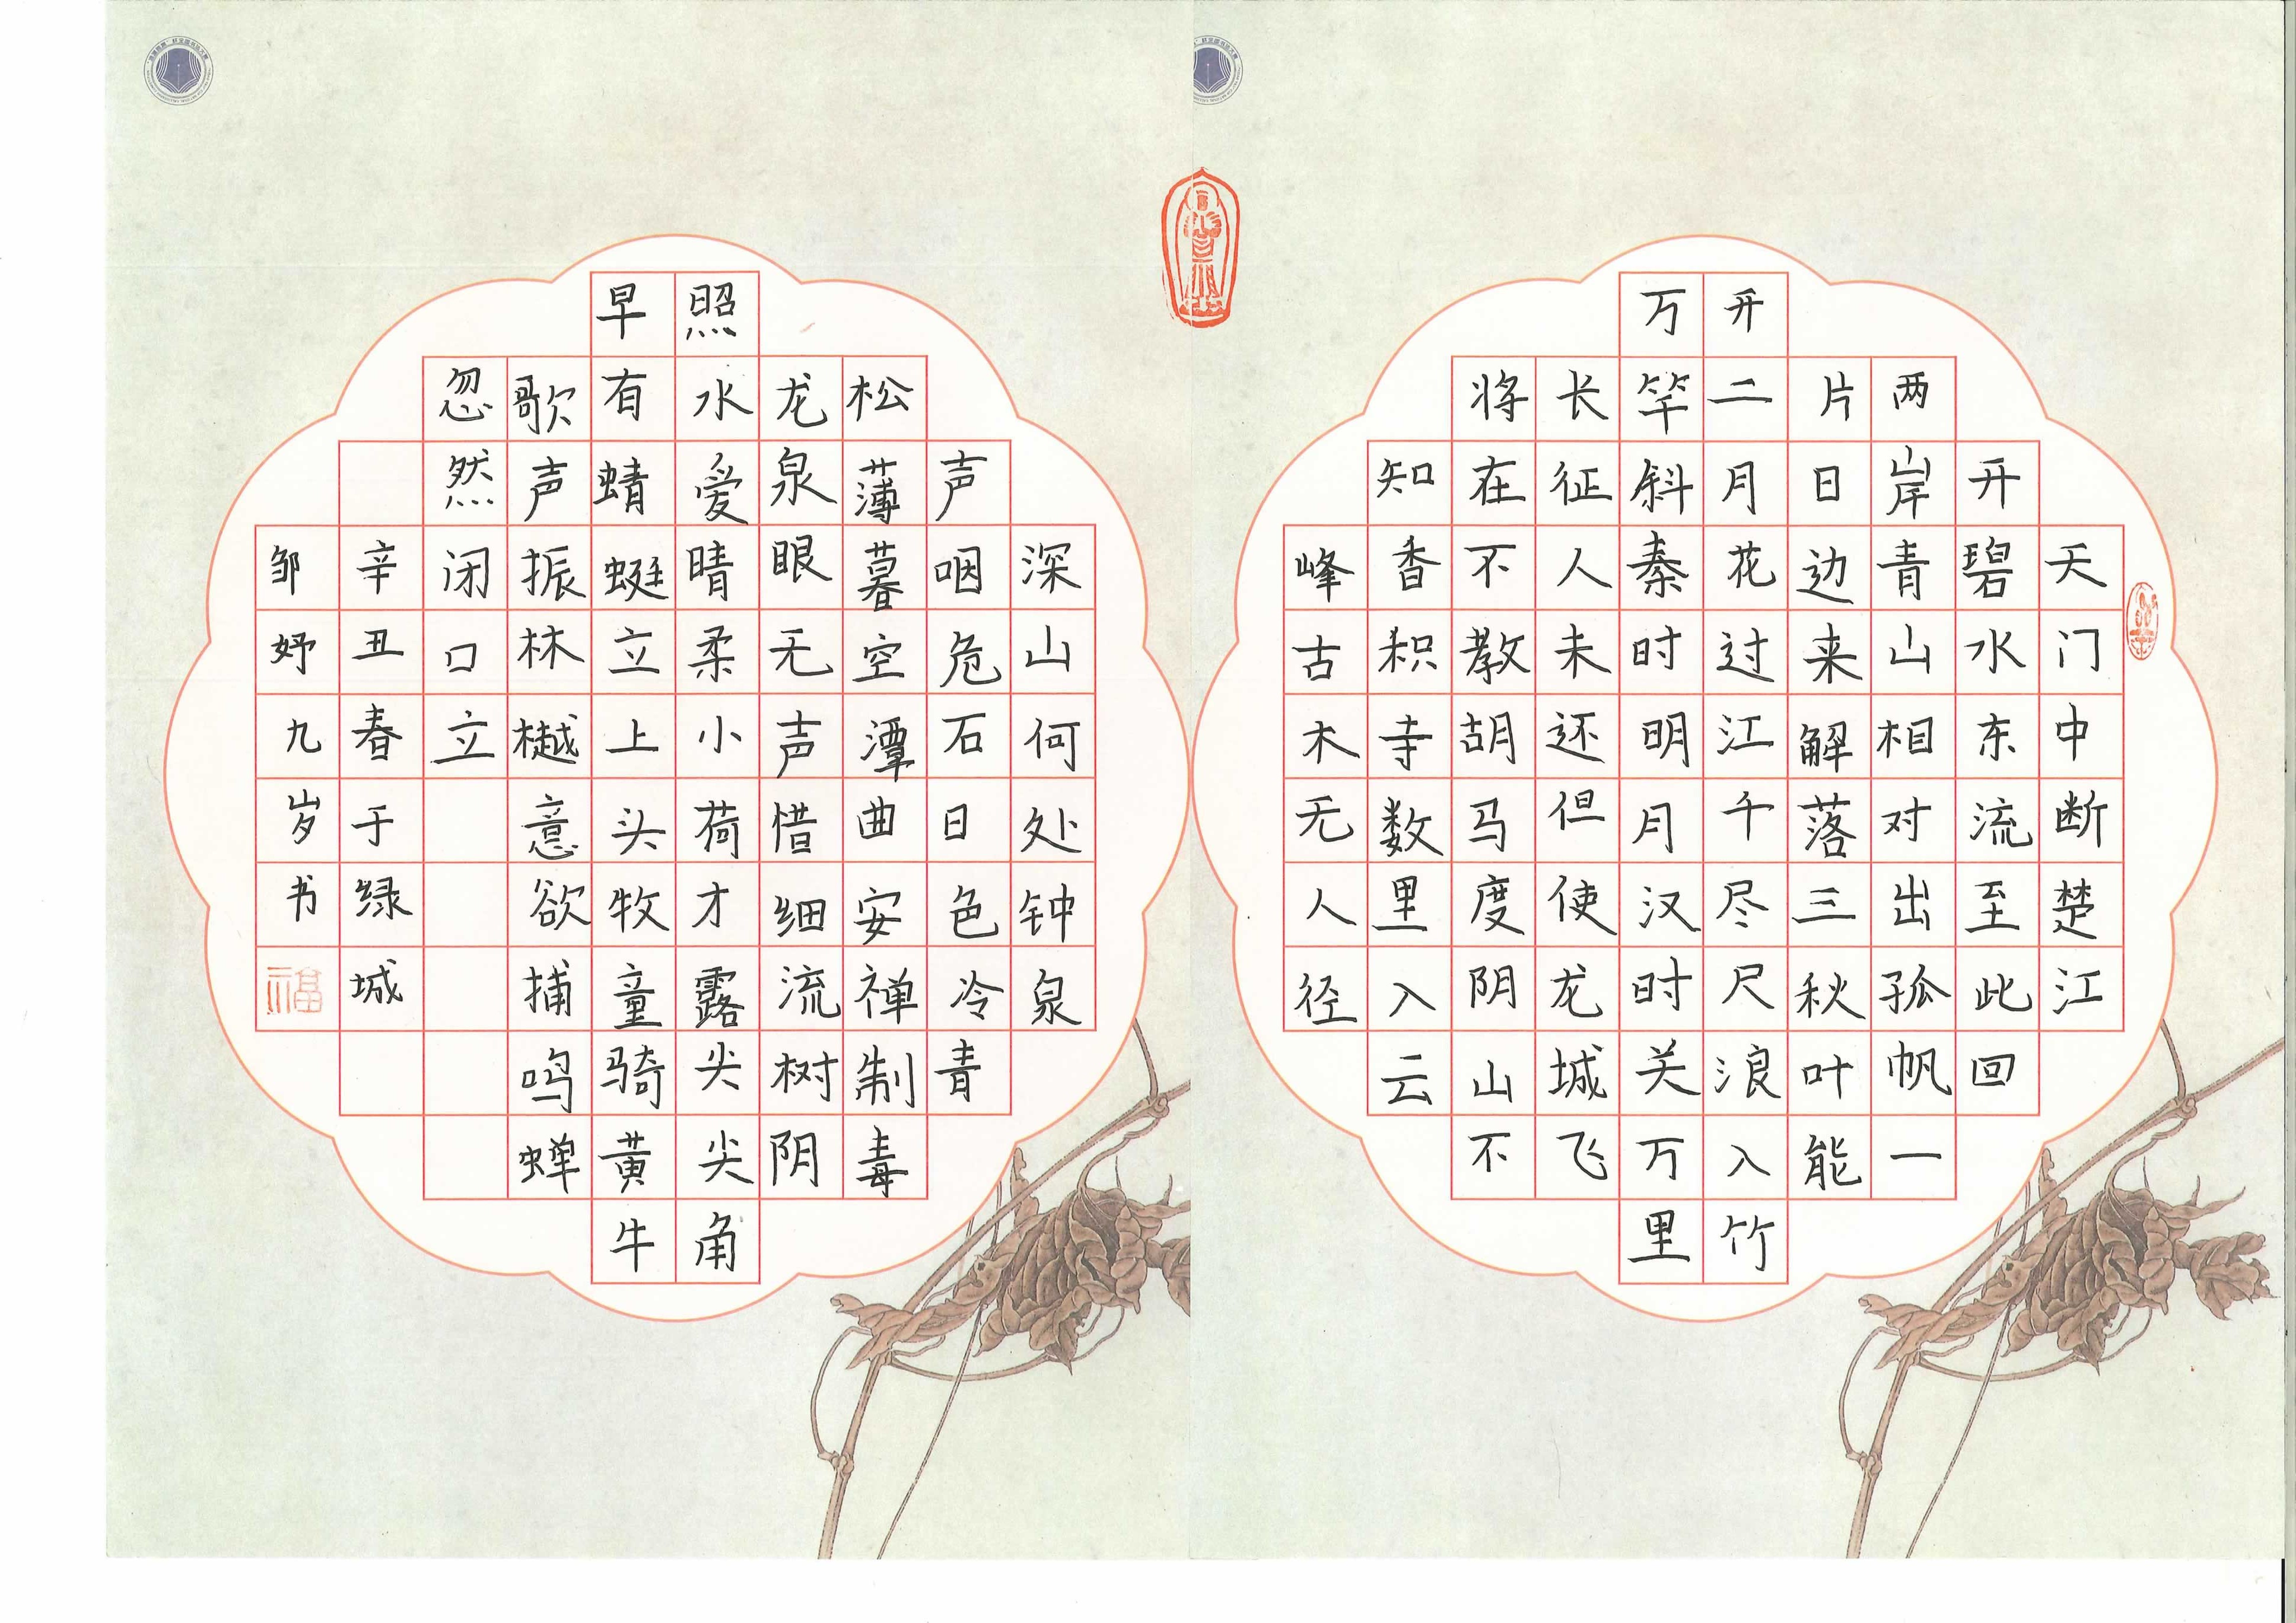 天门中断楚江
开碧水东流至此回
两岸青山相对出孤帆一
片日边来解落三秋叶能
开二月花过江千尺浪入竹
万竿斜秦时明月汉时关万里
长征人未还但使龙城飞
将在不教胡马度阴山不
知香积寺数里入云
峰古木无人径
深山何处钟泉
声咽危石日色冷青
松薄暮空潭曲安禅制毒
龙泉眼无声惜细流树阴
照水爱晴柔小荷才露尖尖角
早有蜻蜓立上头牧童骑黄牛
歌声振林樾意欲捕鸣蝉
忽然闭口立
辛丑春于绿城
邹妤九岁书
福